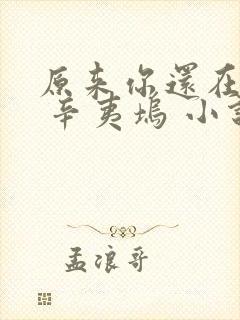 原来你還在
辛夷塢 小説
孟浪哥